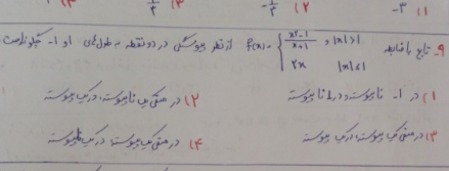 ۱) -۳ ۲) -۱/۲ ۳) ۱/۲
۹- تابع با ضابطه f(x)= { x²-1/x+1 , |x|>1 ; 2x |x|≤1 از نظر پیوستگی در دو نقطه به طول‌های ۱ و -۱ چگونه است
۱) در -۱ ناپیوسته و در ۱ ناپیوسته ۲) در منفی یک ناپیوسته، در یک پیوسته
۳) در منفی یک پیوسته، در یک پیوسته ۴) در منفی یک پیوسته، در یک ناپیوسته